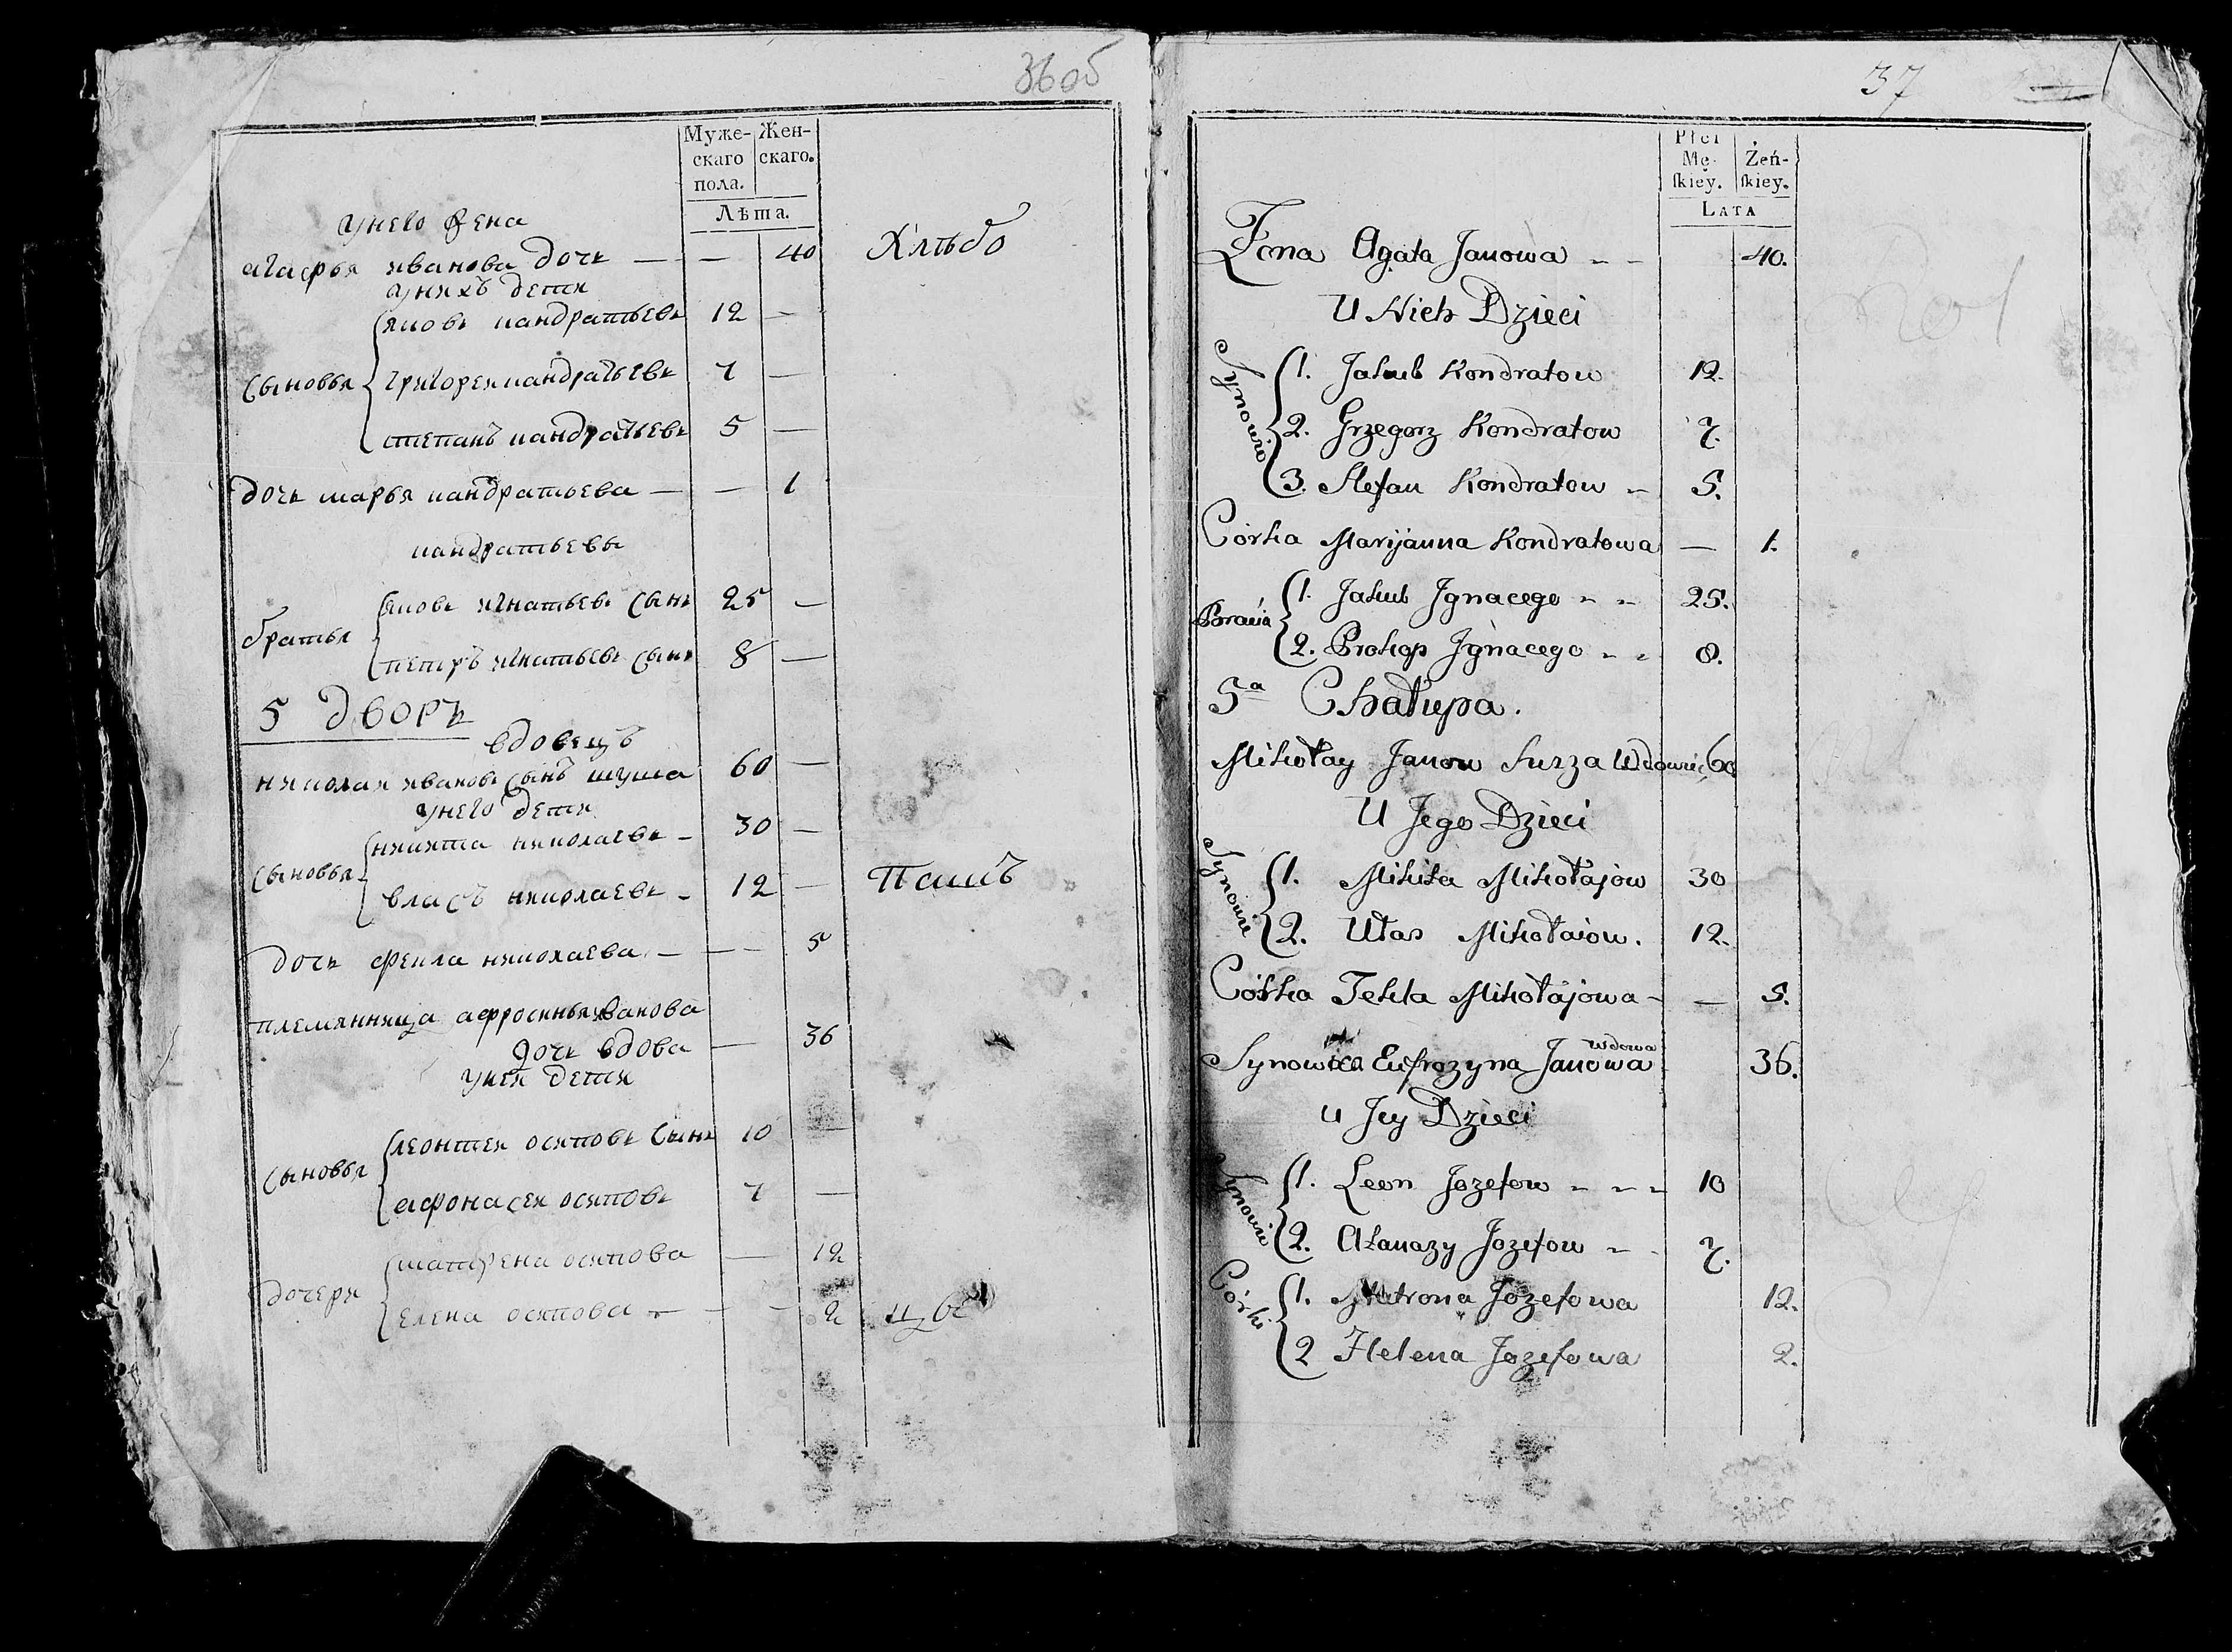 36об
Муже-
скаго
пола.
Жен-
скаго.
Лѣта.
унего жена
агафья иванова дочь — — 40
Хлѣбо
унихъ дети
яковъ кандратьевъ 12 —
Сыновья григореи кандратьевъ 7 —
степанъ кандратьевъ 5 —
дочь марья кандратьева — — 1
кандратьевы
братья
яковъ игнатьевъ сынъ 25 —
петръ игнатьевъ сынъ 8 —
5 дворъ
вдовецъ
николаи ивановъ сынъ шуша 60 —
унего дети
никита николаевъ - 30 —
Сыновья
власъ николаевъ - 12 —
дочь фекла николаева — — 5
племянница афросинья иванова
дочь вдова — 36
унея дети
леонтеи осиповъ сынъ 10 —
Сыновья
афонасеи осиповъ 7 —
матрена осипова — 12
дочери
елена осипова — — - 2
37
Płci
Mę-
skiey.
Żeń-
skiey.
LATA
Żona Agata Janowa - - 40.
U Nich Dzieci
Synowie
1. Jakub Kondratow 12.
2. Grzegorz Kondratow 7.
3. Stefan Kondratow - 5.
Córka Marijanna Kondratowa — 1.
Bracia
1. Jakub Jgnacego - - 25.
2. Prokop Jgnacego - - 8.
5a Chałupa.
Mikołay Janow Surza Wdowiec 60
U Jego Dzieci
Synowie
1. Mikita Mikołajow 30
2. Ułas Mikołaiow. 12.
Córka Tekla Mikołajowa - — 5.
wdowa
Synowica Eufrozyna Janowa 36.
u Jey Dzieci
Synowie
1. Leon Jozefow - - - 10
2. Atanazy Jozefow - - 7.
Córki
1. Matrona Jozefowa 12.
2 Helena Jozefowa 2.